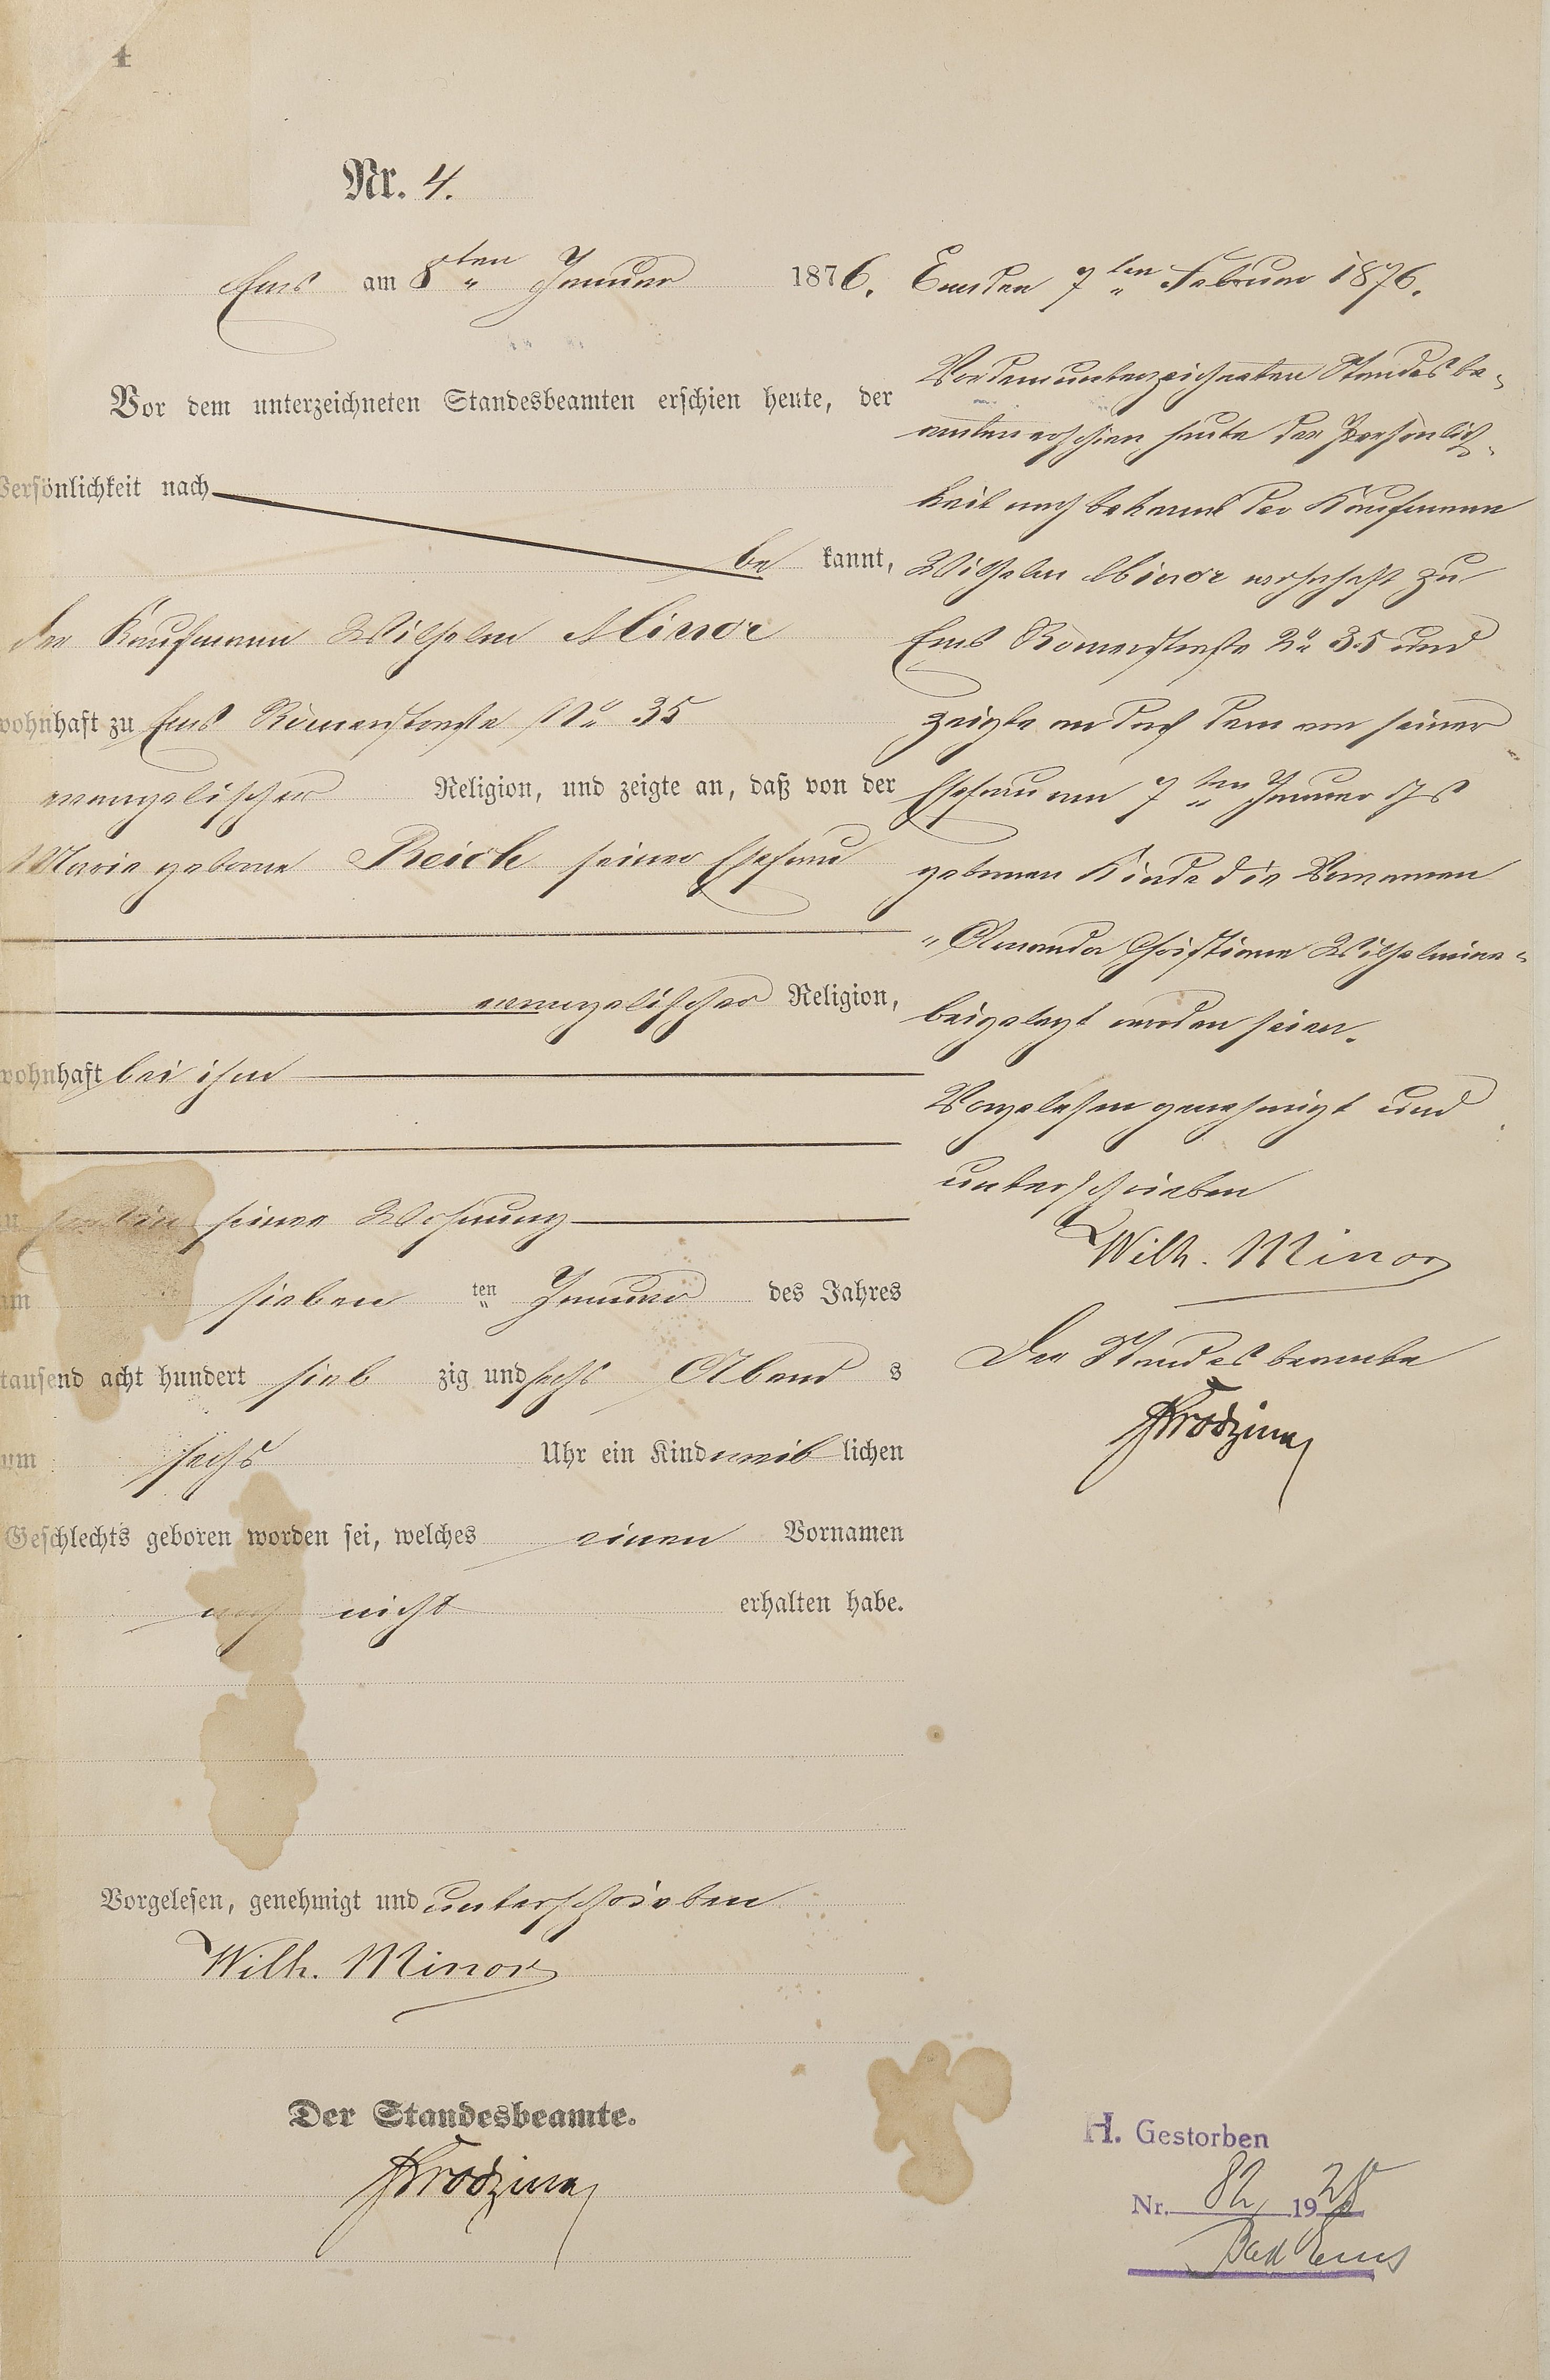 4
Nr. 4.
Ems am 8ten Januar 1876.
Vor dem unterzeichneten Standesbeamten erschien heute, der
Persönlichkeit nach
be kannt,
der Kaufmann Wilhelm Minor
wohnhaft zu Ems Römerstraße No 35
evangelischer Religion, und zeigte an, daß von der
Marie geborne Reich seiner Ehefrau
evangelischer Religion,
wohnhaft bei ihm
seiner Wohnung
am sieben ten Januar des Jahres
tausend acht hundert sieb zig und sechs Abend s
um sechs Uhr ein Kind weib lichen
Geschlechts geboren worden sei, welches einen Vornamen
noch nicht erhalten habe.
Vorgelesen, genehmigt und unterschrieben
Wilh. Minor
Der Standesbeamte.
Ems den 7ten Februar 1876.
Vor dem unterzeichneten Standesbe-
amten erschien heute der Persönlich-
keit nach bekannt der Kaufmann
Wilhelm Minor wohnhaft zu
Ems Römerstraße No 35 und
zeigte an daß dem von seiner
Ehefrau am 7ten Januar
gebornen Kinde die Vornamen
"Amanda Christiane Wilhelmine"
beigelegt worden seien.
Vorgelesen genehmigt und
unterschrieben
Wilh. Minor
Der Standesbeamte
H. Gestorben
Nr. 82 1928
Bad Ems